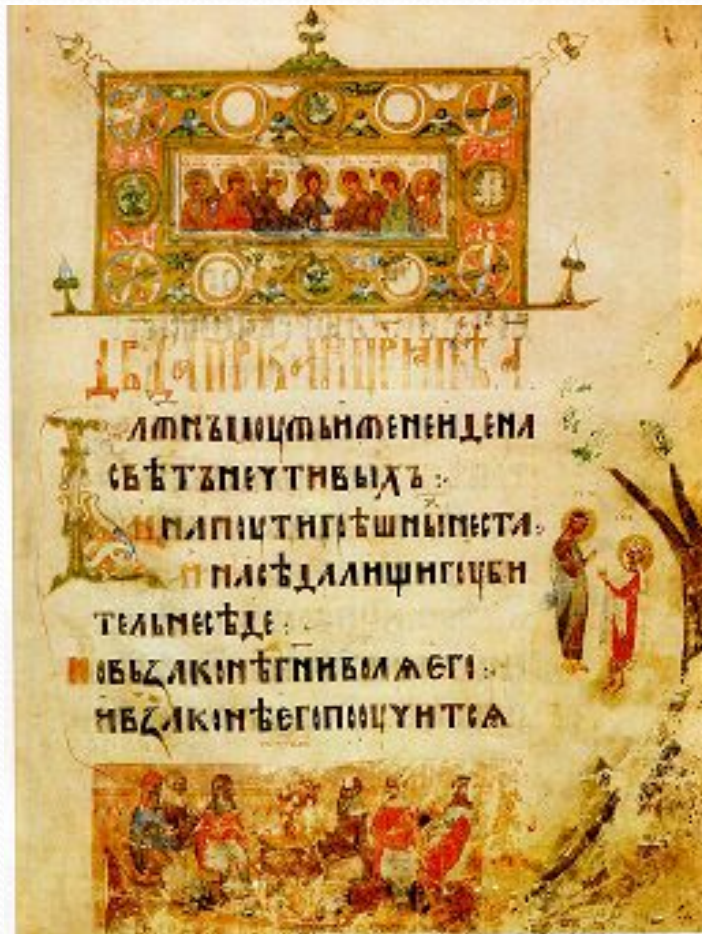 ДВДАПРРКАИЦРѦПѢ·А·
БЛЖНЪМОУЖЬИЖЕНЕИДЕНА
СВѢТЪНЕЧТИВЫХЪ:
ИНАПОУТИГРѢШНЫНЕСТА:
ИНАСѢДАЛИЩИГОУБИ
ТЕЛЬНЕСѢДЕ:
НОВЬЗАКОНѢГНИВОЛѦЕГО:
ИВЗАКОНѢЕГОПООУЧИТСѦ